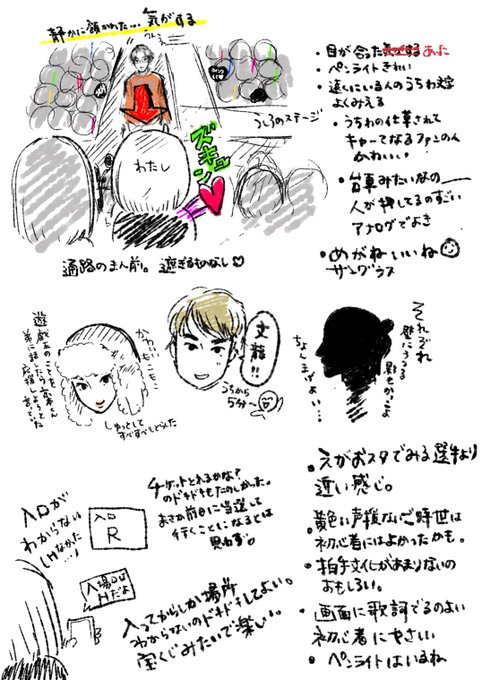 静かに頷かれた…気がする
うしろのステージ
わたし
ズキュン
通路のまん前。遮ぎるものなし♡
・目が合ったあった
・ペンライトきれい
・遠くにいる人のうちわ
よくみえる
・うちわの仕草されて
キャーてなるファンの人
かわいい
・台車みたいなの
人が押してるのすごい
アナログでよき
・めがねいいね
サングラス
かわいい
もこもこ
しゅっとして
すべすべしてた
文龍!!
うちから
5分〜
それぞれ
壁にうつる
影もかっこよ
ちょんまげよい…
入口が
わからない
しなかった…!
入口
R
入場口は
Hだよ
チケットとれるかな?
のドキドキもたのしかった。
まさか前日に当選して
行くことになるとは
思わず。
入ってからしか場所
わからないのドキドキしてよい。
宝くじみたいで楽しい。
・えがおスタでみる選手より
近い感じ。
・黄色い声援ないご時世は
初心者にはよかったかも。
・拍手文化があまりないの
おもしろい。
・画面に歌詞でるのよい
初心者にやさしい
・ペンライトはいるね